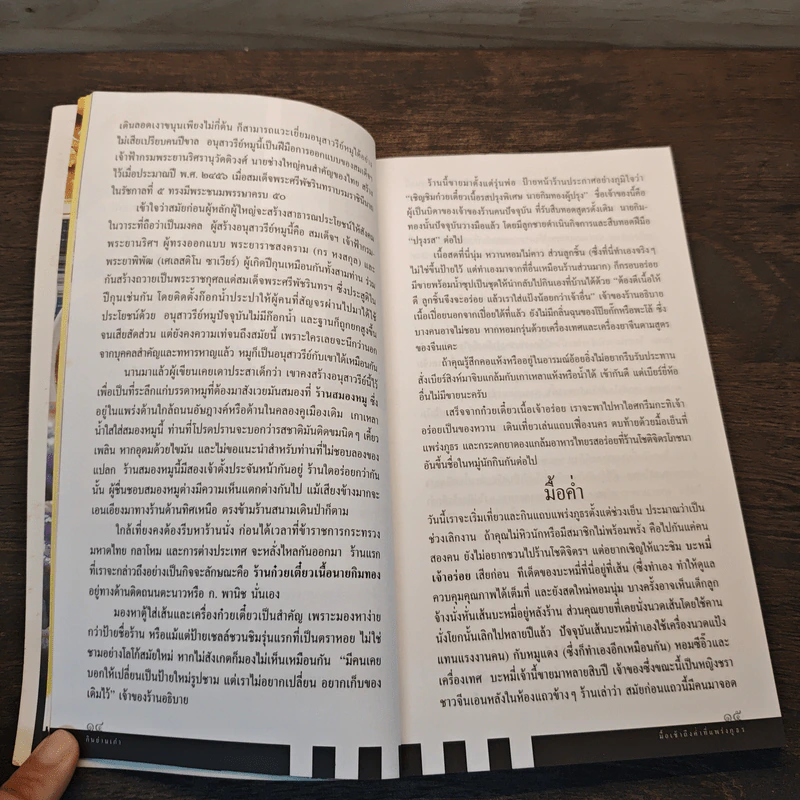 เดินลอดเงาขนุนเพียงไม่กี่ต้น ก็สามารถแวะเยี่ยมอนุสาวรีย์หมูได้อย่าง
ไม่เสียเปรียบคนปีขาล อนุสาวรีย์หมูนี้เป็นฝีมือการออกแบบของสมเด็จฯ
เจ้าฟ้ากรมพระยานริศรานุวัดติวงศ์ นายช่างใหญ่คนสำคัญของไทย สร้าง
ไว้เมื่อประมาณปี พ.ศ. ๒๔๕๖ เมื่อสมเด็จพระศรีพัชรินทราบรมราชินีนาถ
ในรัชกาลที่ ๕ ทรงมีพระชนมพรรษาครบ ๕๐
เข้าใจว่าสมัยก่อนผู้หลักผู้ใหญ่จะสร้างสาธารณประโยชน์ให้สังคม
ในวาระที่ถือว่าเป็นมงคล ผู้สร้างอนุสาวรีย์หมูนี้คือ สมเด็จฯ เจ้าฟ้ากรม
พระยานริศฯ ผู้ทรงออกแบบ พระยาราชสงคราม (กร หงสกุล) และ
พระยาพิพัฒ (เศเลสติโน ซาเวียร์) ผู้เกิดปีกุนเหมือนกันทั้งสามท่าน ร่วม
กันสร้างถวายเป็นพระราชกุศลแต่สมเด็จพระศรีพัชรินทรฯ ซึ่งประสูติใน
ปีกุนเช่นกัน โดยติดตั้งก๊อกน้ำประปาให้ผู้คนที่สัญจรผ่านไปมาได้ใช้
ประโยชน์ด้วย อนุสาวรีย์หมูปัจจุบันไม่มีก๊อกน้ำ และฐานก็ถูกยกสูงขึ้น
จนเสียสัดส่วน แต่ยังคงความเท่จนถึงสมัยนี้ เพราะใครเลยจะนึกว่านอก
จากบุคคลสำคัญและทหารหาญแล้ว หมูก็เป็นอนุสาวรีย์กับเขาได้เหมือนกัน
นานมาแล้วผู้เขียนเคยเดาประสาเด็กว่า เขาคงสร้างอนุสาวรีย์นี้ไว้
เพื่อเป็นที่ระลึกแก่บรรดาหมูที่ต้องมาสังเวยมันสมองที่ ร้านสมองหมู ซึ่ง
อยู่ในแพร่งด้านใกล้ถนนอัษฎางค์หรือด้านในคลองคูเมืองเดิม เกาเหลา
น้ำใสใส่สมองหมูนี้ ท่านที่โปรดปรานจะบอกว่ารสชาติมันติดขมนิดๆ เคี้ยว
เพลิน หากอุดมด้วยไขมัน และไม่ขอแนะนำสำหรับท่านที่ไม่ชอบลองของ
แปลก ร้านสมองหมูนี้มีสองเจ้าตั้งประจันหน้ากันอยู่ ร้านใดอร่อยกว่ากัน
นั้น ผู้ชื่นชอบสมองหมูต่างมีความเห็นแตกต่างกันไป แม้เสียงข้างมากจะ
เอนเอียงมาทางร้านด้านทิศเหนือ ตรงข้ามร้านสนามเดินป่าก็ตาม
ใกล้เที่ยงคงต้องรีบหาร้านนั่ง ก่อนได้เวลาที่ข้าราชการกระทรวง
มหาดไทย กลาโหม และการต่างประเทศ จะหลั่งไหลกันออกมา ร้านแรก
ที่เราจะกล่าวถึงอย่างเป็นกิจจะลักษณะคือ ร้านก๋วยเตี๋ยวเนื้อนายกิมทอง
อยู่ทางด้านติดถนนตะนาวหรือ ก. พานิช นั่นเอง
มองหาตู้ใส่เส้นและเครื่องก๋วยเตี๋ยวเป็นสำคัญ เพราะมองหาง่าย
กว่าป้ายชื่อร้าน หรือแม้แต่ป้ายเชลล์ชวนชิมรุ่นแรกที่เป็นตราหอย ไม่ใช่
ชามอย่างโลโก้สมัยใหม่ หากไม่สังเกตก็มองไม่เห็นเหมือนกัน “มีคนเคย
บอกให้เปลี่ยนเป็นป้ายใหม่รูปชาม แต่เราไม่อยากเปลี่ยน อยากเก็บของ
เดิมไว้” เจ้าของร้านอธิบาย
๑๔
กินย่านเก่า
ร้านนี้ขายมาตั้งแต่รุ่นพ่อ ป้ายหน้าร้านประกาศอย่างภูมิใจว่า
“เชิญชิมก๋วยเตี๋ยวเนื้อรสปรุงพิเศษ นายกิมทองผู้ปรุง” ชื่อเจ้าของนี้คือ
ผู้เป็นบิดาของเจ้าของร้านคนปัจจุบัน ที่รับสืบทอดสูตรดั้งเดิม นายกิม-
ทองนั้นปัจจุบันวางมือแล้ว โดยมีลูกชายดำเนินกิจการและสืบทอดฝีมือ
“ปรุงรส” ต่อไป
เนื้อสดที่นี่นุ่ม หวานหอมไม่คาว ส่วนลูกชิ้น (ซึ่งที่นี่ทำเองจริงๆ
ไม่ใช่ขึ้นป้ายไว้ แต่ทำเองมาจากที่อื่นเหมือนร้านส่วนมาก) ก็กรอบอร่อย
มีขายพร้อมน้ำซุปเป็นชุดให้นำกลับไปกินเองที่บ้านได้ด้วย “ต้องตีเนื้อให้
ดี ลูกชิ้นจึงจะอร่อย แล้วเราใส่แป้งน้อยกว่าเจ้าอื่น” เจ้าของร้านอธิบาย
เนื้อเปื่อยนอกจากเปื่อยได้ที่แล้ว ยังไม่มีกลิ่นฉุนของโป๊ยกั๊กหรือพะโล้ ซึ่ง
บางคนอาจไม่ชอบ หากหอมกรุ่นด้วยเครื่องเทศและเครื่องยาจีนตามสูตร
ของจีนแคะ
ถ้าคุณรู้สึกคอแห้งหรืออยู่ในอารมณ์อ้อยอิ่งไม่อยากรีบรับประทาน
สั่งเบียร์สิงห์มาจิบแกล้มกับเกาเหลาแห้งหรือน้ำได้ เข้ากันดี แต่เบียร์ยี่ห้อ
อื่นไม่มีขายนะครับ
เสร็จจากก๋วยเตี๋ยวเนื้อเจ้าอร่อย เราจะพาไปหาไอศกรีมกะทิเจ้า
อร่อยเป็นของหวาน เดินเที่ยวเล่นแถบเฟื่องนคร ตบท้ายด้วยมื้อเย็นที่
แพร่งภูธร และกระดกยาดองแกล้มอาหารไทยรสอร่อยที่ร้านโชติจิตรโภชนา
อันขึ้นชื่อในหมู่นักกินกันต่อไป
มื้อค่ำ
วันนี้เราจะเริ่มเที่ยวและกินแถบแพร่งภูธรตั้งแต่ช่วงเย็น ประมาณว่าเป็น
ช่วงเลิกงาน ถ้าคุณไม่หิวนักหรือมีสมาชิกไม่พร้อมพรั่ง คือไปกันแค่คน
สองคน ยังไม่อยากชวนไปร้านโชติจิตรฯ แต่อยากเชิญให้แวะชิม บะหมี่
เจ้าอร่อย เสียก่อน ทีเด็ดของบะหมี่ที่นี่อยู่ที่เส้น (ซึ่งทำเอง ทำให้ดูแล
ควบคุมคุณภาพได้เต็มที่ และยังสดใหม่หอมนุ่ม บางครั้งอาจเห็นเด็กลูก
จ้างนั่งทับเส้นบะหมี่อยู่หลังร้าน ส่วนคุณยายที่เคยนั่งนวดเส้นโดยใช้คาน
นั่งโยกนั้นเลิกไปหลายปีแล้ว ปัจจุบันเส้นบะหมี่ทำเองใช้เครื่องนวดแป้ง
แทนแรงงานคน) กับหมูแดง (ซึ่งก็ทำเองอีกเหมือนกัน) หอมซีอิ๊วและ
เครื่องเทศ บะหมี่เจ้านี้ขายมาหลายสิบปี เจ้าของซึ่งขณะนี้เป็นหญิงชรา
ชาวจีนเอนหลังในห้องแถวข้างๆ ร้านเล่าว่า สมัยก่อนแถวนี้มีคนมาจอด
๑๕
มื้อเช้าถึงค่ำที่แพร่งภูธร